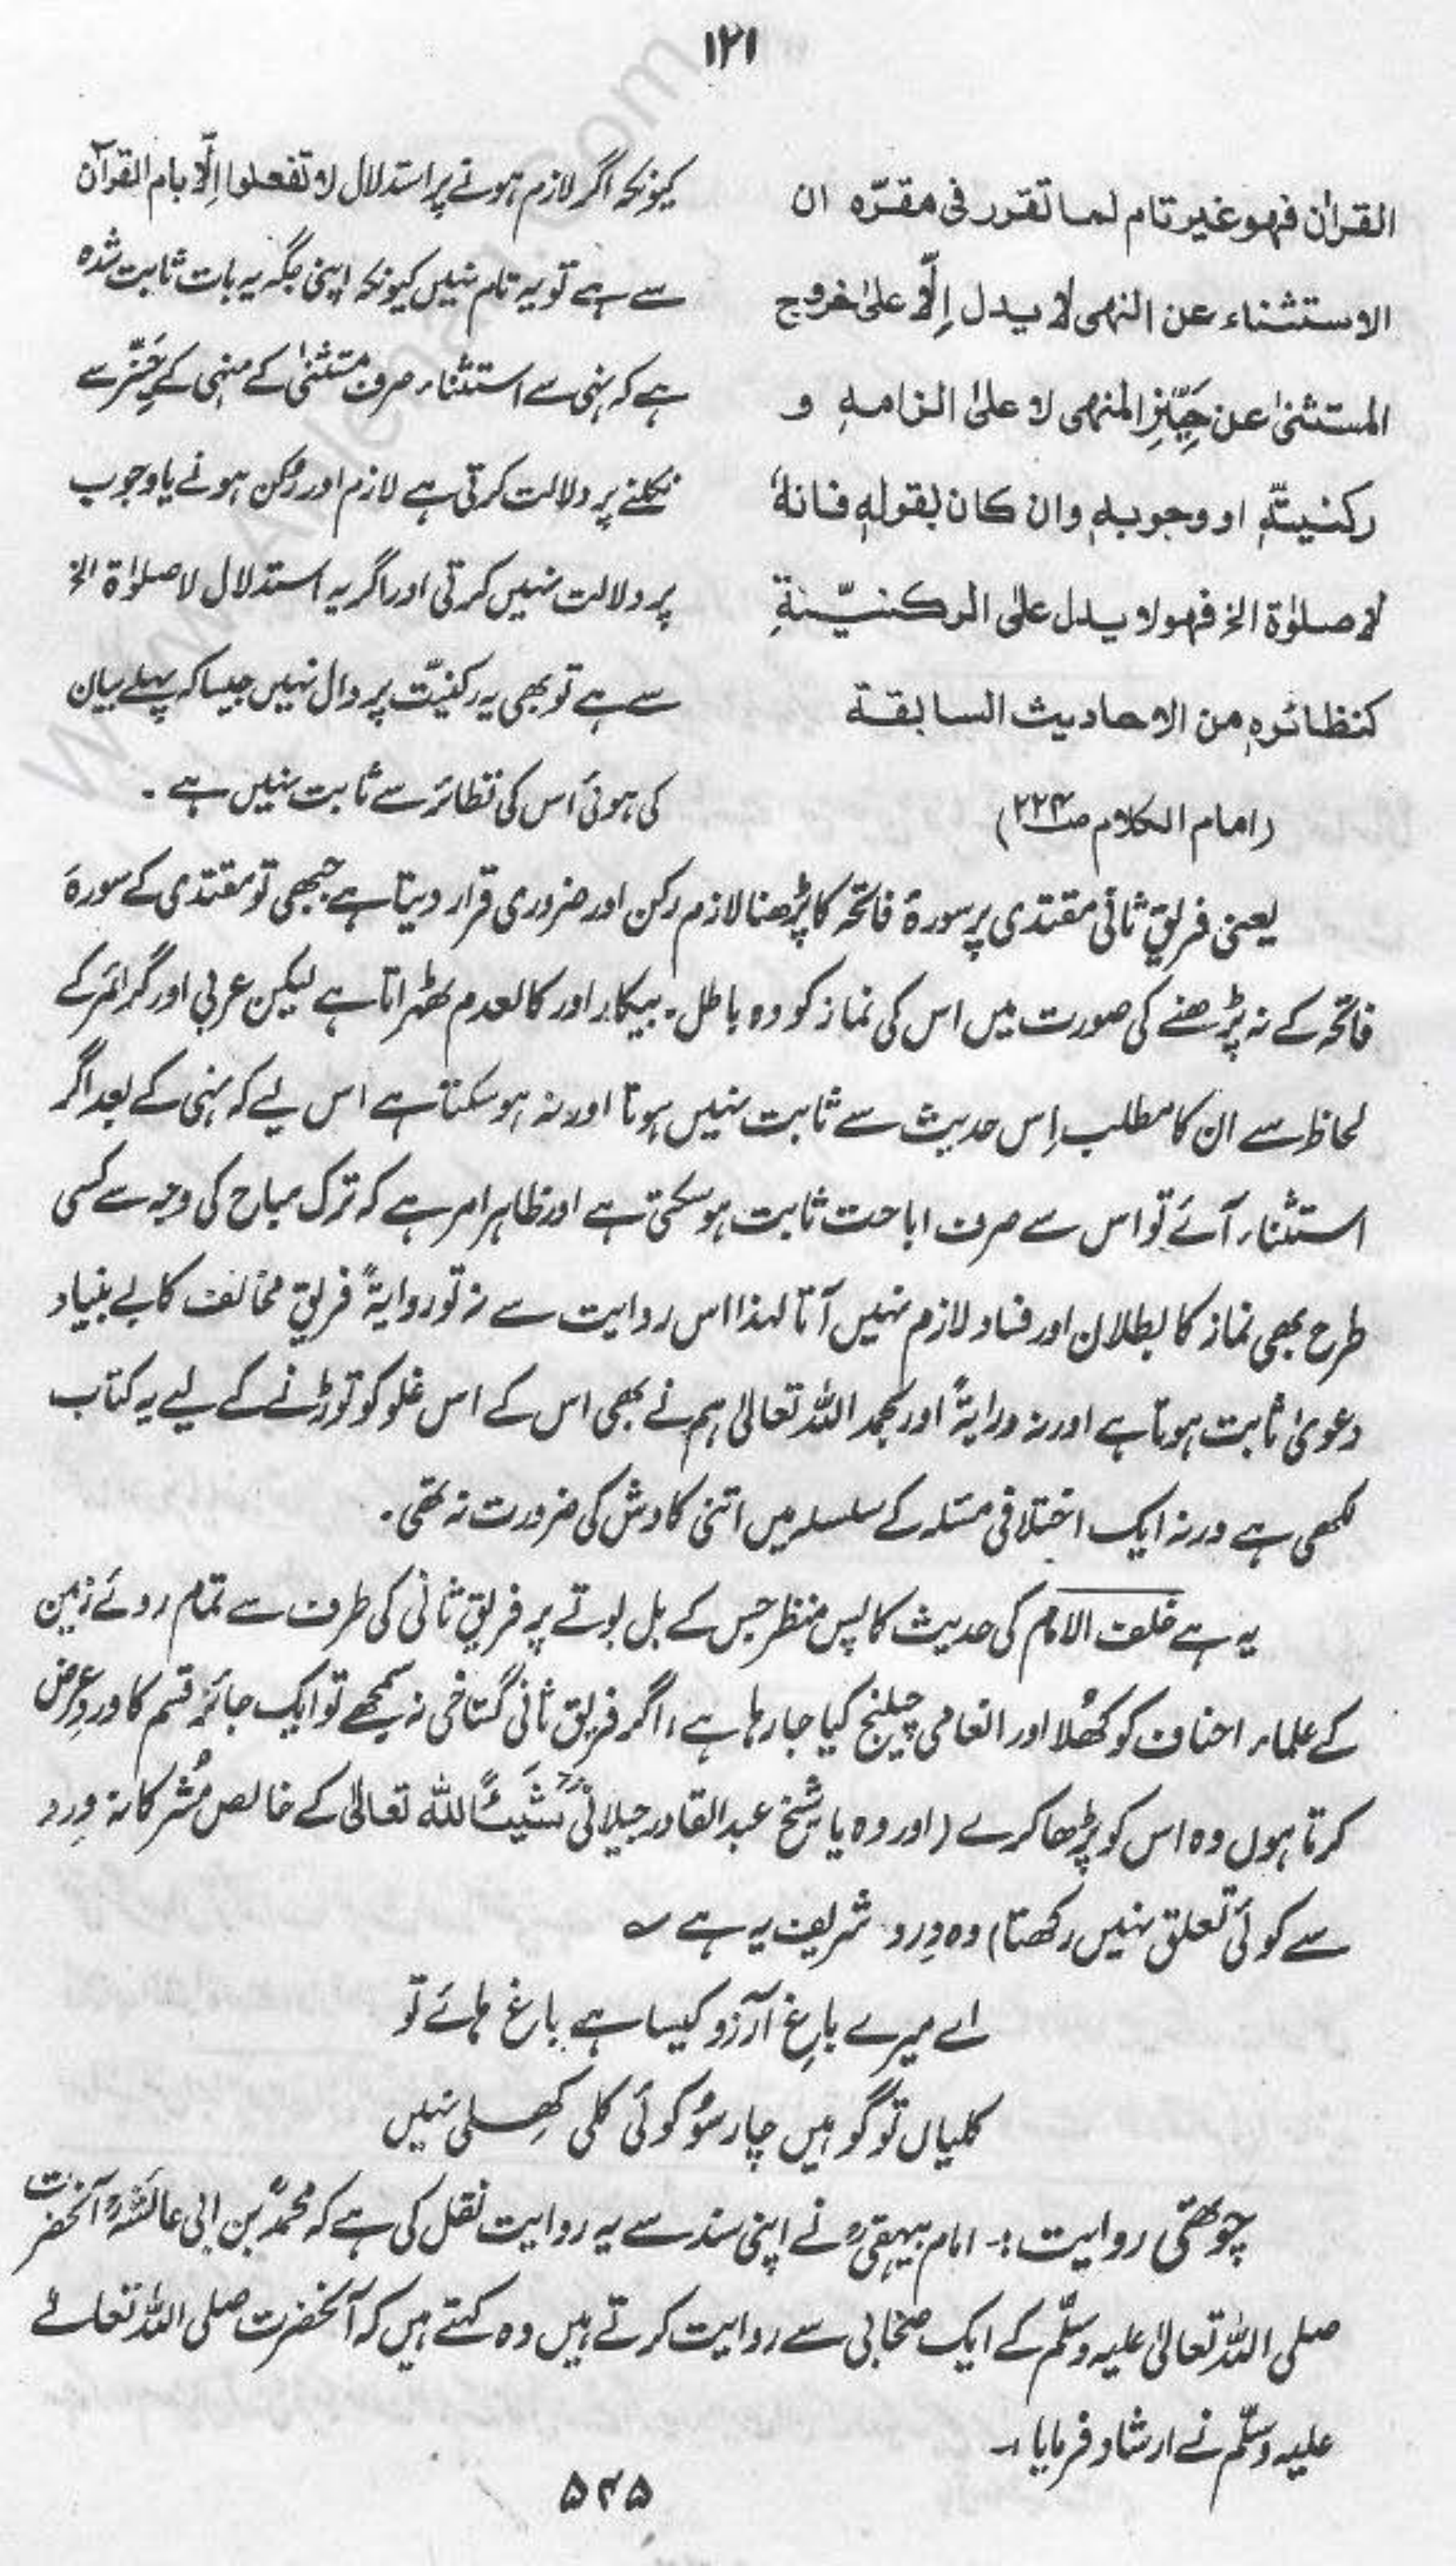 ۱۲۱
القران فهو غیر تام لما تقرر فی مقرّہ ان
الاستثناء عن النهی لا یدل اِلّا علیٰ خروج
المستثنیٰ عن حَیِّزِ المنهی لا علیٰ الزامہٖ و
رکنیتّہٖ او وجوبہٖ وان کان بقولہٖ فانہٗ
لا صلوٰۃ الخ فهو لا یدل علی الرکنیّۃِ
کنظائرہٖ من الاحادیث السابقۃ
(امام الکلام ص۲۲۴)
کیونکہ اگر لازم ہونے پر استدلال لا تفعلوا اِلّا بام القرآن
سے ہے تو یہ تام نہیں کیونکہ اپنی جگہ یہ بات ثابت شدہ
ہے کہ نہی سے استثناء صرف مستثنیٰ کے منہی کے حَیِّز سے
نکلنے پر دلالت کرتی ہے لازم اور رُکن ہونے یا وجوب
پر دلالت نہیں کرتی اور اگر یہ استدلال لا صلوٰۃ الخ
سے ہے تو بھی یہ رکنیّت پر دال نہیں جیسا کہ پہلے بیان
کی ہوئی اس کی نظائر سے ثابت نہیں ہے ۔
یعنی فریق ثانی مقتدی پر سورۂ فاتحہ کا پڑھنا لازم رکن اور ضروری قرار دیتا ہے جبھی تو مقتدی کے سورۂ
فاتحہ کے نہ پڑھنے کی صورت میں اس کی نماز کو وہ باطل ۔ بیکار اور کالعدم ٹھہراتا ہے لیکن عربی اور گرائمر کے
لحاظ سے ان کا مطلب اِس حدیث سے ثابت نہیں ہوتا اور نہ ہو سکتا ہے اس لیے کہ نہی کے بعد اگر
استثناء آئے تو اس سے صرف اباحت ثابت ہو سکتی ہے اور ظاہر امر ہے کہ ترک مباح کی وجہ سے کسی
طرح بھی نماز کا بطلان اور فساد لازم نہیں آتا لہذا اس روایت سے نہ تو روایۃً فریقِ مخالف کا بے بنیاد
دعویٰ ثابت ہوتا ہے اور نہ درایۃً اور بحمد اللہ تعالیٰ ہم نے بھی اس کے اس غلو کو توڑنے کے لیے یہ کتاب
لکھی ہے ورنہ ایک اختلافی مسئلہ کے سلسلہ میں اتنی کاوش کی ضرورت نہ تھی ۔
یہ ہے خلف الامام کی حدیث کا پس منظر جس کے بل بوتے پر فریق ثانی کی طرف سے تمام روئے زمین
کے علماء احناف کو کھُلا اور انعامی چیلنج کیا جا رہا ہے، اگر فریق ثانی گستاخی نہ سمجھے تو ایک جائز قسم کا ورد عرض
کرتا ہوں وہ اس کو پڑھا کرے (اور وہ یا شیخ عبدالقادر جیلانیؒ شَیئًا للہ تعالیٰ کے خالص مُشرکانہ وِرد
سے کوئی تعلق نہیں رکھتا) وہ وِرد شریف یہ ہے ؎
اے میرے باغِ آرزو کیسا ہے باغ ہائے تو
کلیاں تو گو ہیں چار سُو کوئی کلی کھِلی نہیں
چوتھی روایت :۔ امام بیہقیؒ نے اپنی سند سے یہ روایت نقل کی ہے کہ محمدؒ بن ابی عائشہؒ آنحضرت
صلی اللہ تعالیٰ علیہ وسلّم کے ایک صحابی سے روایت کرتے ہیں وہ کہتے ہیں کہ آنحضرت صلی اللہ تعالےٰ
علیہ وسلّم نے ارشاد فرمایا :۔
۵۲۵